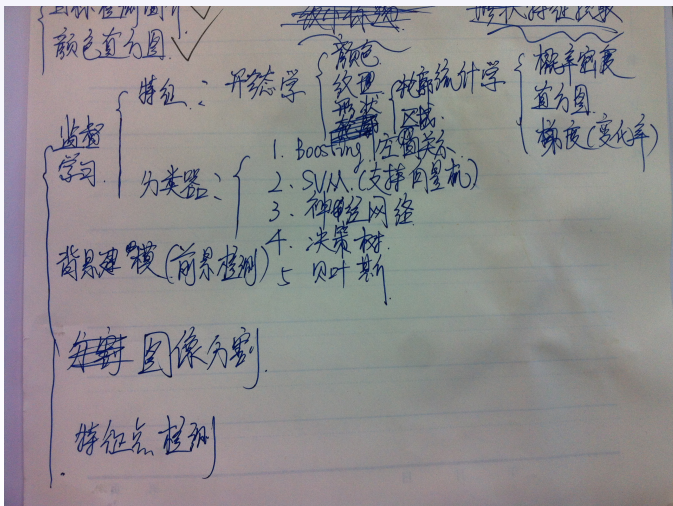 目标检测
颜色直方图
形状
监督
学习
特征:
形态学
颜色
纹理
形状
轮廓
区域
空间关系
统计学
概率密度
直方图
梯度(变化率)
分类器:
1. Boosting
2. SVM.(支持向量机)
3. 神经网络
4. 决策树.
5 贝叶斯.
背景建模(前景检测)
图像分割.
特征点检测